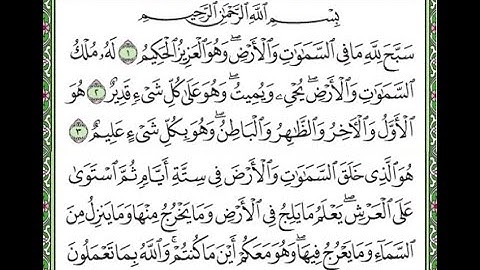 بِسْمِ اللَّهِ الرَّحْمَٰنِ الرَّحِيمِ
سَبَّحَ لِلَّهِ مَا فِي السَّمَاوَاتِ وَالْأَرْضِ ۖ وَهُوَ الْعَزِيزُ الْحَكِيمُ ١ لَهُ مُلْكُ
السَّمَاوَاتِ وَالْأَرْضِ ۖ يُحْيِي وَيُمِيتُ ۖ وَهُوَ عَلَىٰ كُلِّ شَيْءٍ قَدِيرٌ ٢ هُوَ
الْأَوَّلُ وَالْآخِرُ وَالظَّاهِرُ وَالْبَاطِنُ ۖ وَهُوَ بِكُلِّ شَيْءٍ عَلِيمٌ ٣
هُوَ الَّذِي خَلَقَ السَّمَاوَاتِ وَالْأَرْضَ فِي سِتَّةِ أَيَّامٍ ثُمَّ اسْتَوَىٰ
عَلَى الْعَرْشِ ۖ يَعْلَمُ مَا يَلِجُ فِي الْأَرْضِ وَمَا يَخْرُجُ مِنْهَا وَمَا يَنْزِلُ مِنَ
السَّمَاءِ وَمَا يَعْرُجُ فِيهَا ۖ وَهُوَ مَعَكُمْ أَيْنَ مَا كُنْتُمْ ۚ وَاللَّهُ بِمَا تَعْمَلُونَ